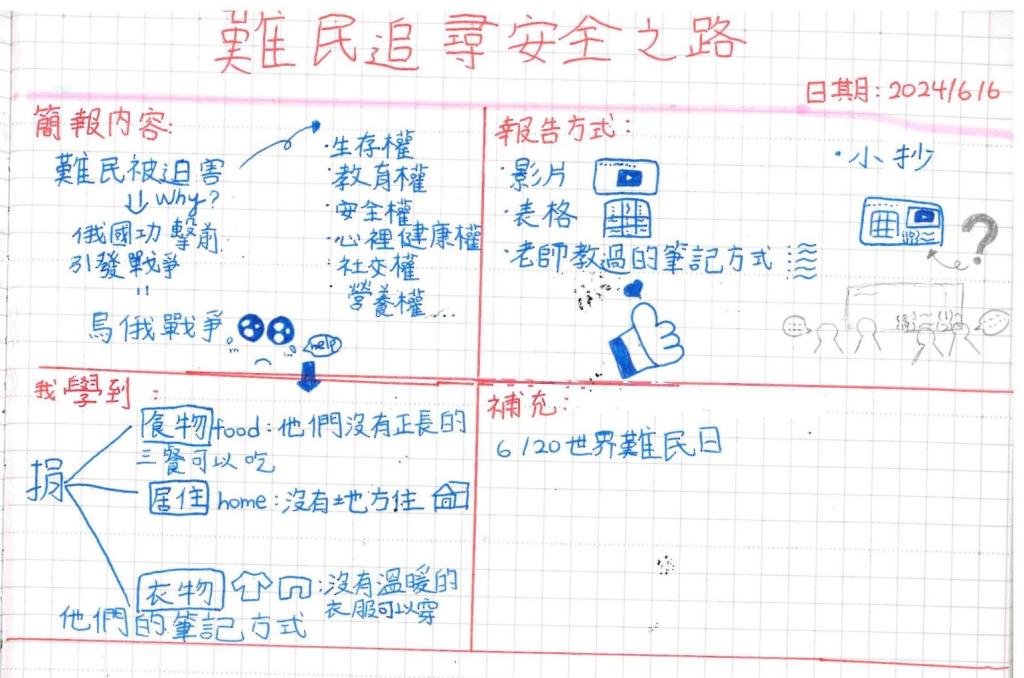 難民追尋安全之路
日期:2024/6/6
簡報內容:
難民被迫害
Why?
俄國功擊前
引發戰爭
烏俄戰爭。
help
·生存權
·教育權
·安全權
·心裡健康權
·社交權
·營養權...
報告方式:
·影片
·表格
·老師教過的筆記方式
·小抄
?
我學到:
捐
食物food:他們沒有正長的
三餐可以吃
居住 home:沒有地方住
衣物:沒有溫暖的
衣服可以穿
他們的筆記方式
補充:
6/20世界難民日